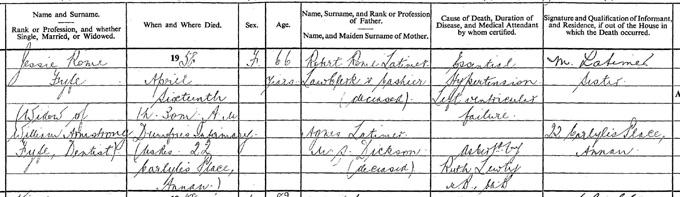 Name and Surname.
Rank or Profession, and whether Single, Married, or Widowed.
When and Where Died.
Sex.
Age.
Name, Surname, and Rank or Profession of Father.
Name, and Maiden Surname of Mother.
Cause of Death, Duration of Disease, and Medical Attendant by whom certified.
Signature and Qualification of Informant, and Residence, if out of the House in which the Death occurred.
Jessie Rome
Fyfe
(Widow of
William Armstrong
Fyfe, Dentist)
1958
April
Sixteenth
1h. 30m. A.M.
Dumfries Infirmary
(Usres. 22
Carlyle's Place,
Annan.)
F.
66
Years
Robert Rome Latimer
Law Clerk & Cashier
(deceased)
Agnes Latimer
m.s. Dickson
(deceased)
Essential
Hypertension
Left ventricular
failure.
as cert'd by
Ruth Lewty
M.B., Ch.B
M. Latimer
Sister
22 Carlyle's Place,
Annan